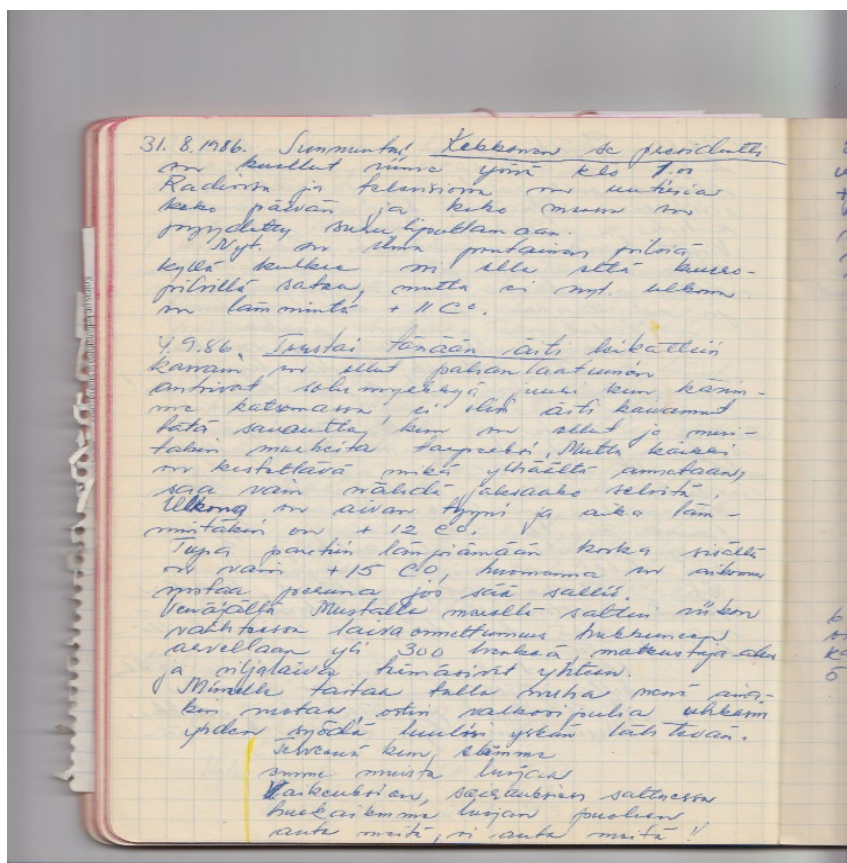 31.8.1986. Sunnuntai Kekkonen se presidentti
on kuollut viime yönä klo 1.00
Radiossa ja televisiossa on uutisia
koko päivän ja koko maassa on
pyydetty suruliputtamaan.
Nyt on ilma poutainen pilviä
kyllä kulkee on ollu että kuuro-
pilvillä sataa, mutta ei nyt. ulkona
on lämmintä + 11 C°.
4.9.86. Torstai tänään äiti leikattiin
kasvain on ollut pahanlaatuinen
antoivat solumyrkkyä juuri kun kävim-
me katsomassa, ei olisi äiti kaivannut
tätä sairautta, kun on ollut jo mui-
takin murheita tarpeeksi, Mutta kaikki
on kestettävä mikä ylhäältä annetaan,
saa vain nähdä jaksaako selvitä.
Ulkona on aivan tyyni ja aika läm-
mintäkin on + 12 C°.
Tupa pantiin lämpiämään koska sisällä
on vain +15 C°, huomenna on aikomus
nostaa peruna jos sää sallii.
Venäjällä Mustalla merellä sattui viikon
vaihteessa laivaonnettomuus hukkuneen
arvellaan yli 300 henkeä, matkustaja-alus
ja viljalaiva törmäsivät yhteen.
Minulla taitaa tulla nuha nenä
kin ostin valkosipulia uhkasin
yhden syödä luulisi yskän lähtevän.
Terveenä kun, elämme
emme muista luojaa
Vaikeuksien, sairauksien sattuessa
huokailemme luojan puoleen
auta meitä, oi auta meitä!!